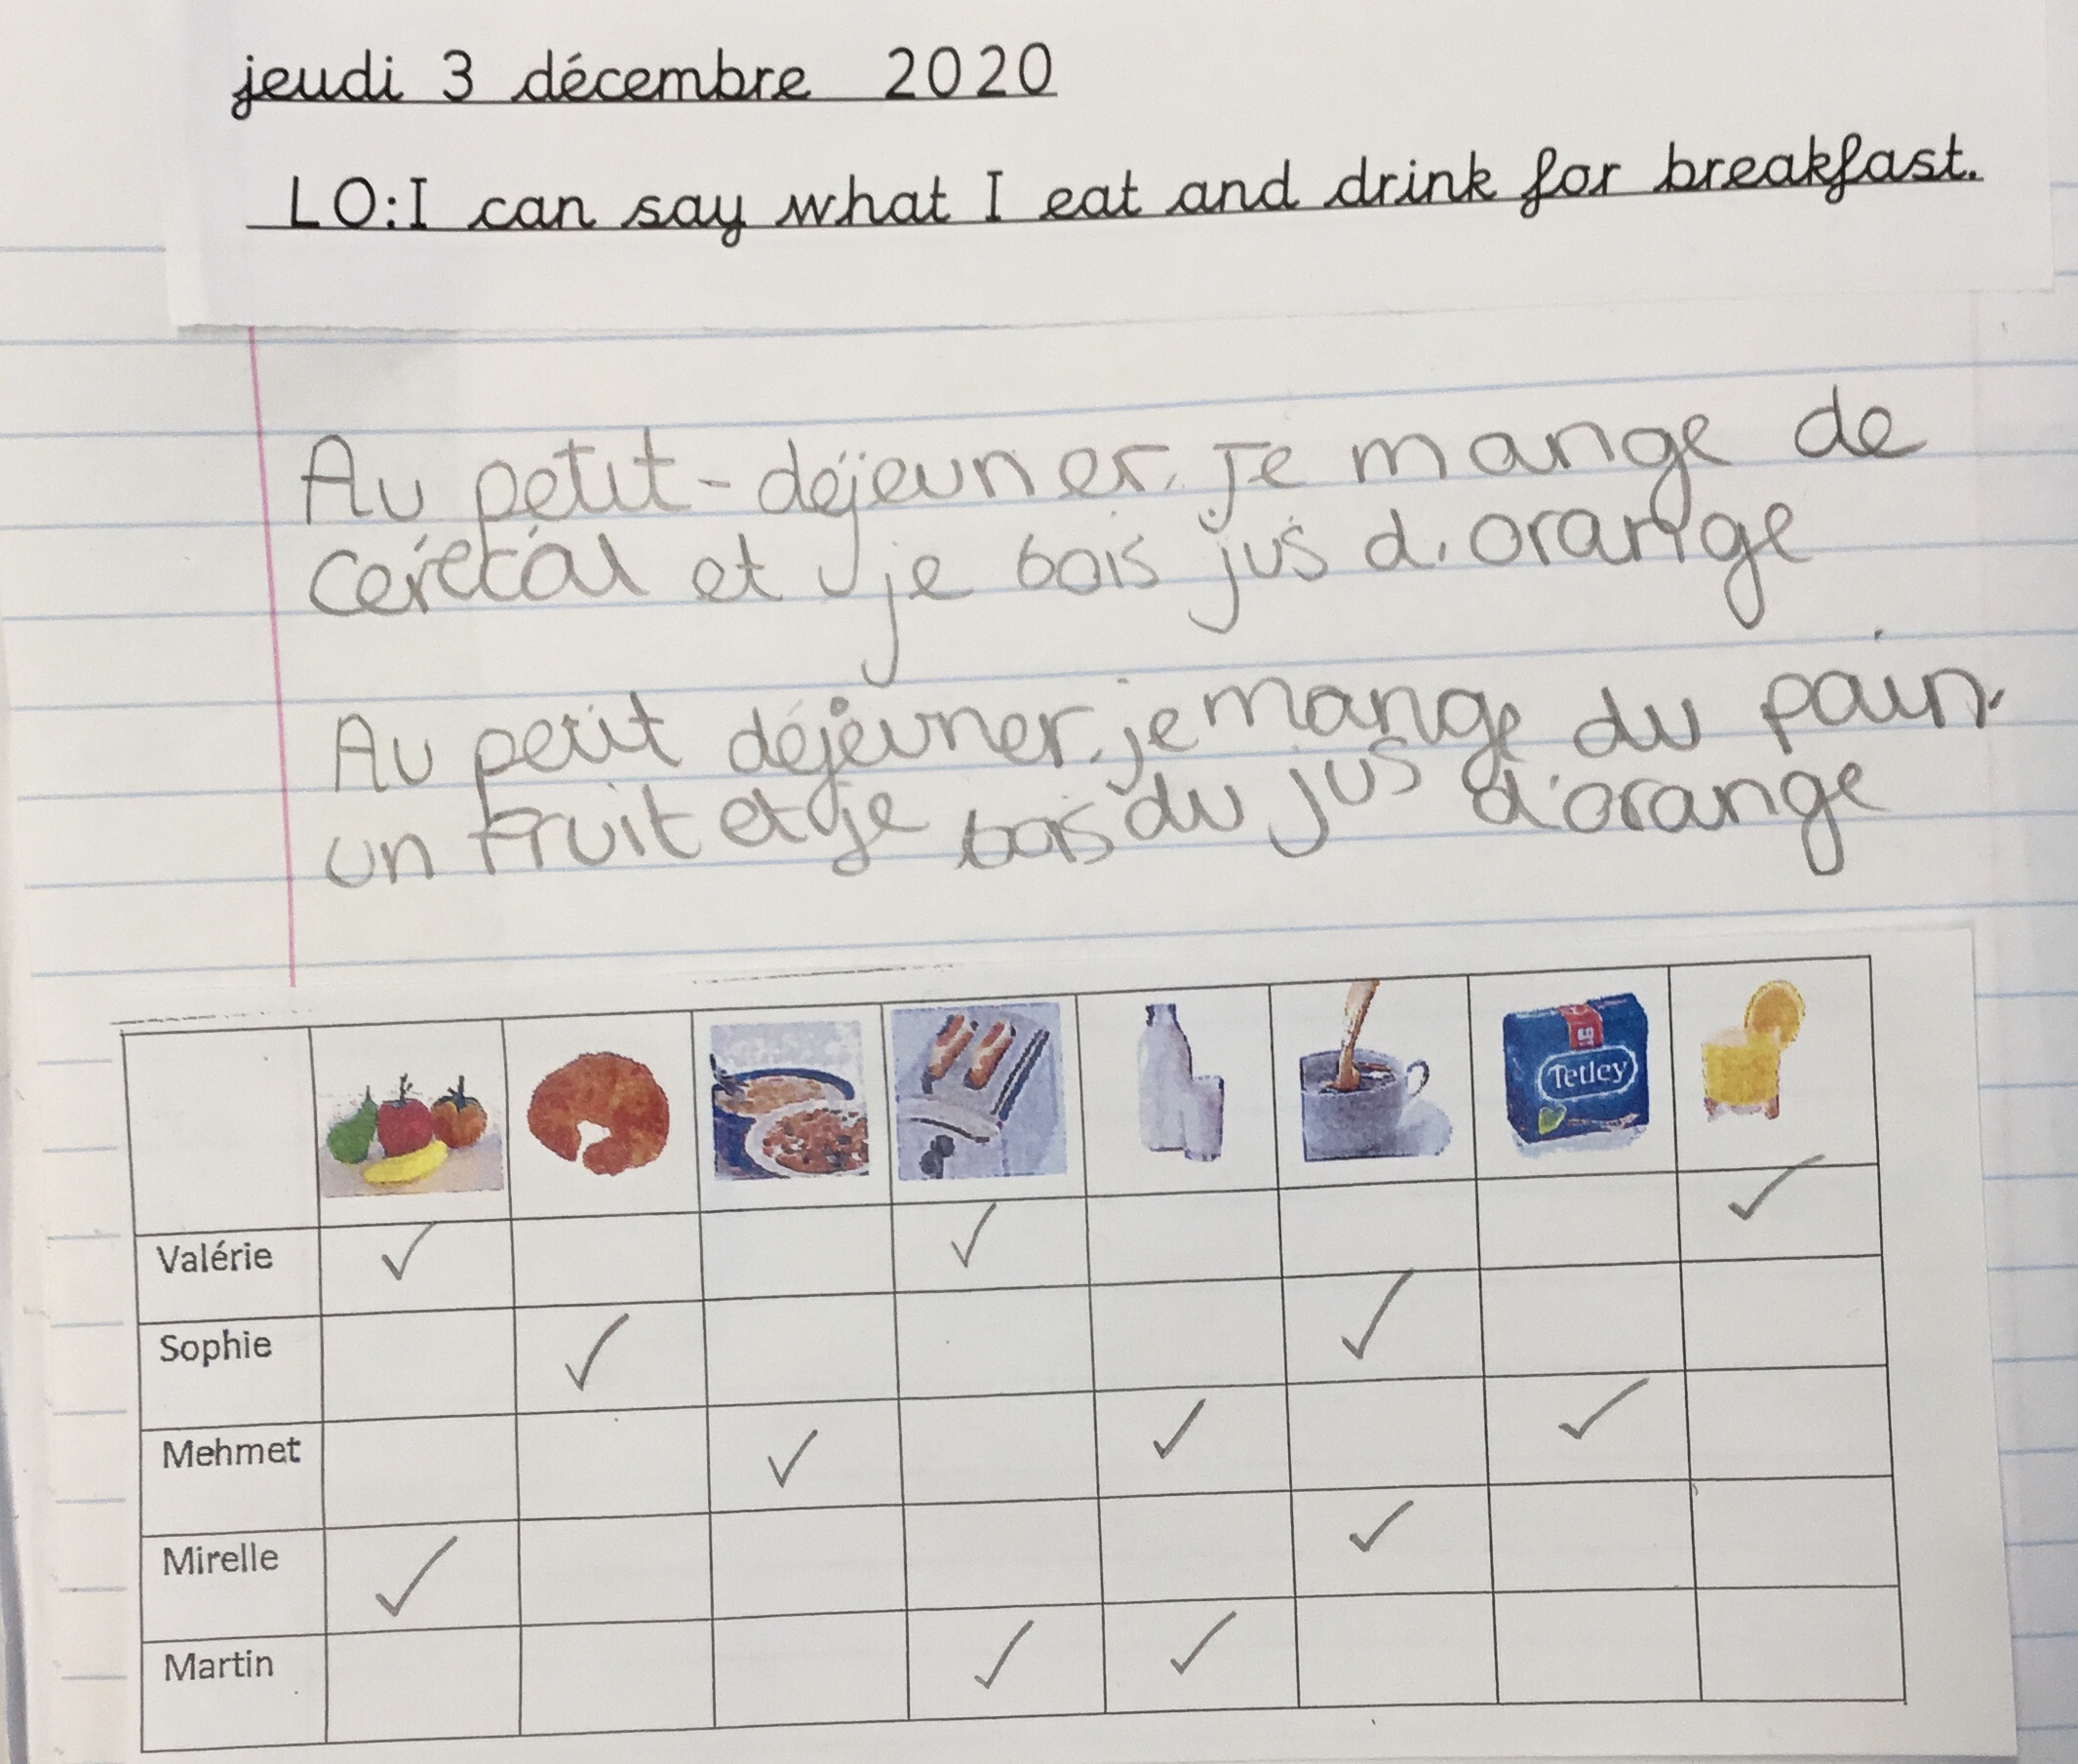 jeudi 3 décembre 2020
LO: I can say what I eat and drink for breakfast.
Au petit-déjeuner, je mange de
et je bois jus d'orange
Au petit déjeuner, je mange du pain,
un fruit et je bois du jus d'orange
Tetley
Valérie
Sophie
Mehmet
Mirelle
Martin